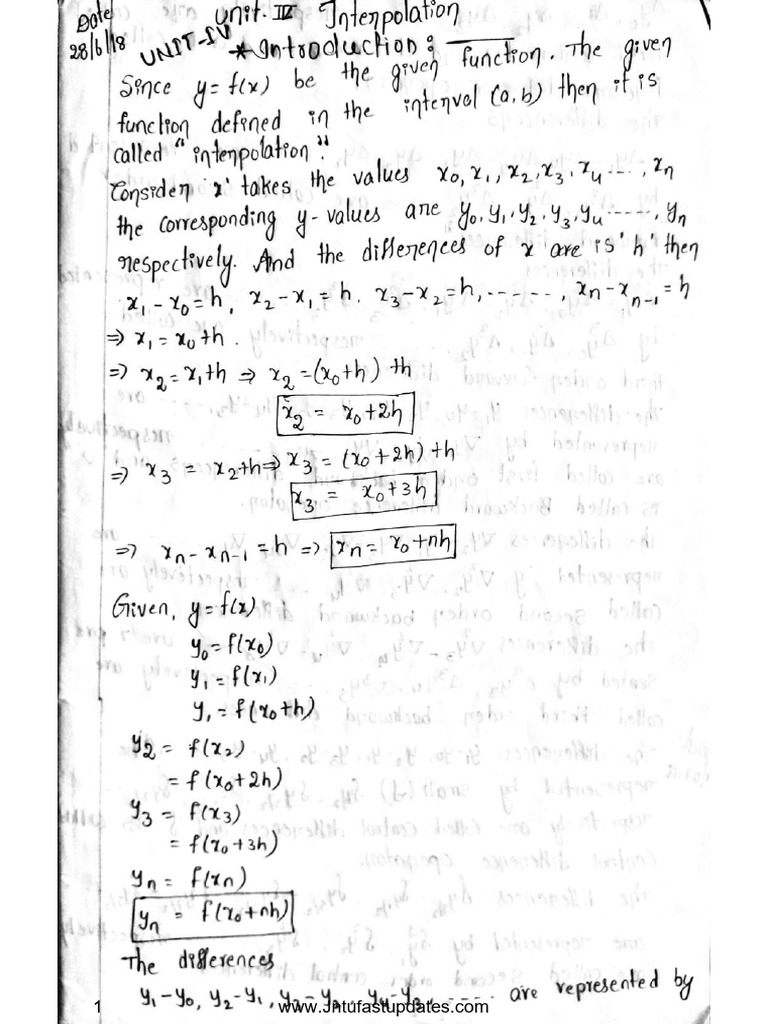 Date
28/6/18
Unit-IV Interpolation
UNIT-IV
* Introduction :
Since y = f(x) be the given function. The given
function defined in the interval (a,b) then it is
called "interpolation".
Consider 'x' takes the values x0, x1, x2, x3, x4 ...., xn
the corresponding y-values are y0, y1, y2, y3, y4 ....., yn
respectively. And the differences of x are is 'h' then
x1 - x0 = h, x2 - x1 = h. x3 - x2 = h, ......., xn - xn-1 = h
⇒ x1 = x0 + h.
⇒ x2 = x1 + h ⇒ x2 = (x0 + h) + h
x2 = x0 + 2h
⇒ x3 = x2 + h ⇒ x3 = (x0 + 2h) + h
x3 = x0 + 3h
⇒ xn - xn-1 = h ⇒ xn = x0 + nh
Given, y = f(x)
y0 = f(x0)
y1 = f(x1)
y1 = f(x0 + h)
y2 = f(x2)
= f(x0 + 2h)
y3 = f(x3)
= f(x0 + 3h)
yn = f(xn)
yn = f(x0 + nh)
The differences
y1 - y0, y2 - y1, y3 - y2, y4 - y3, ..... are represented by
1
www.Jntufastupdates.com